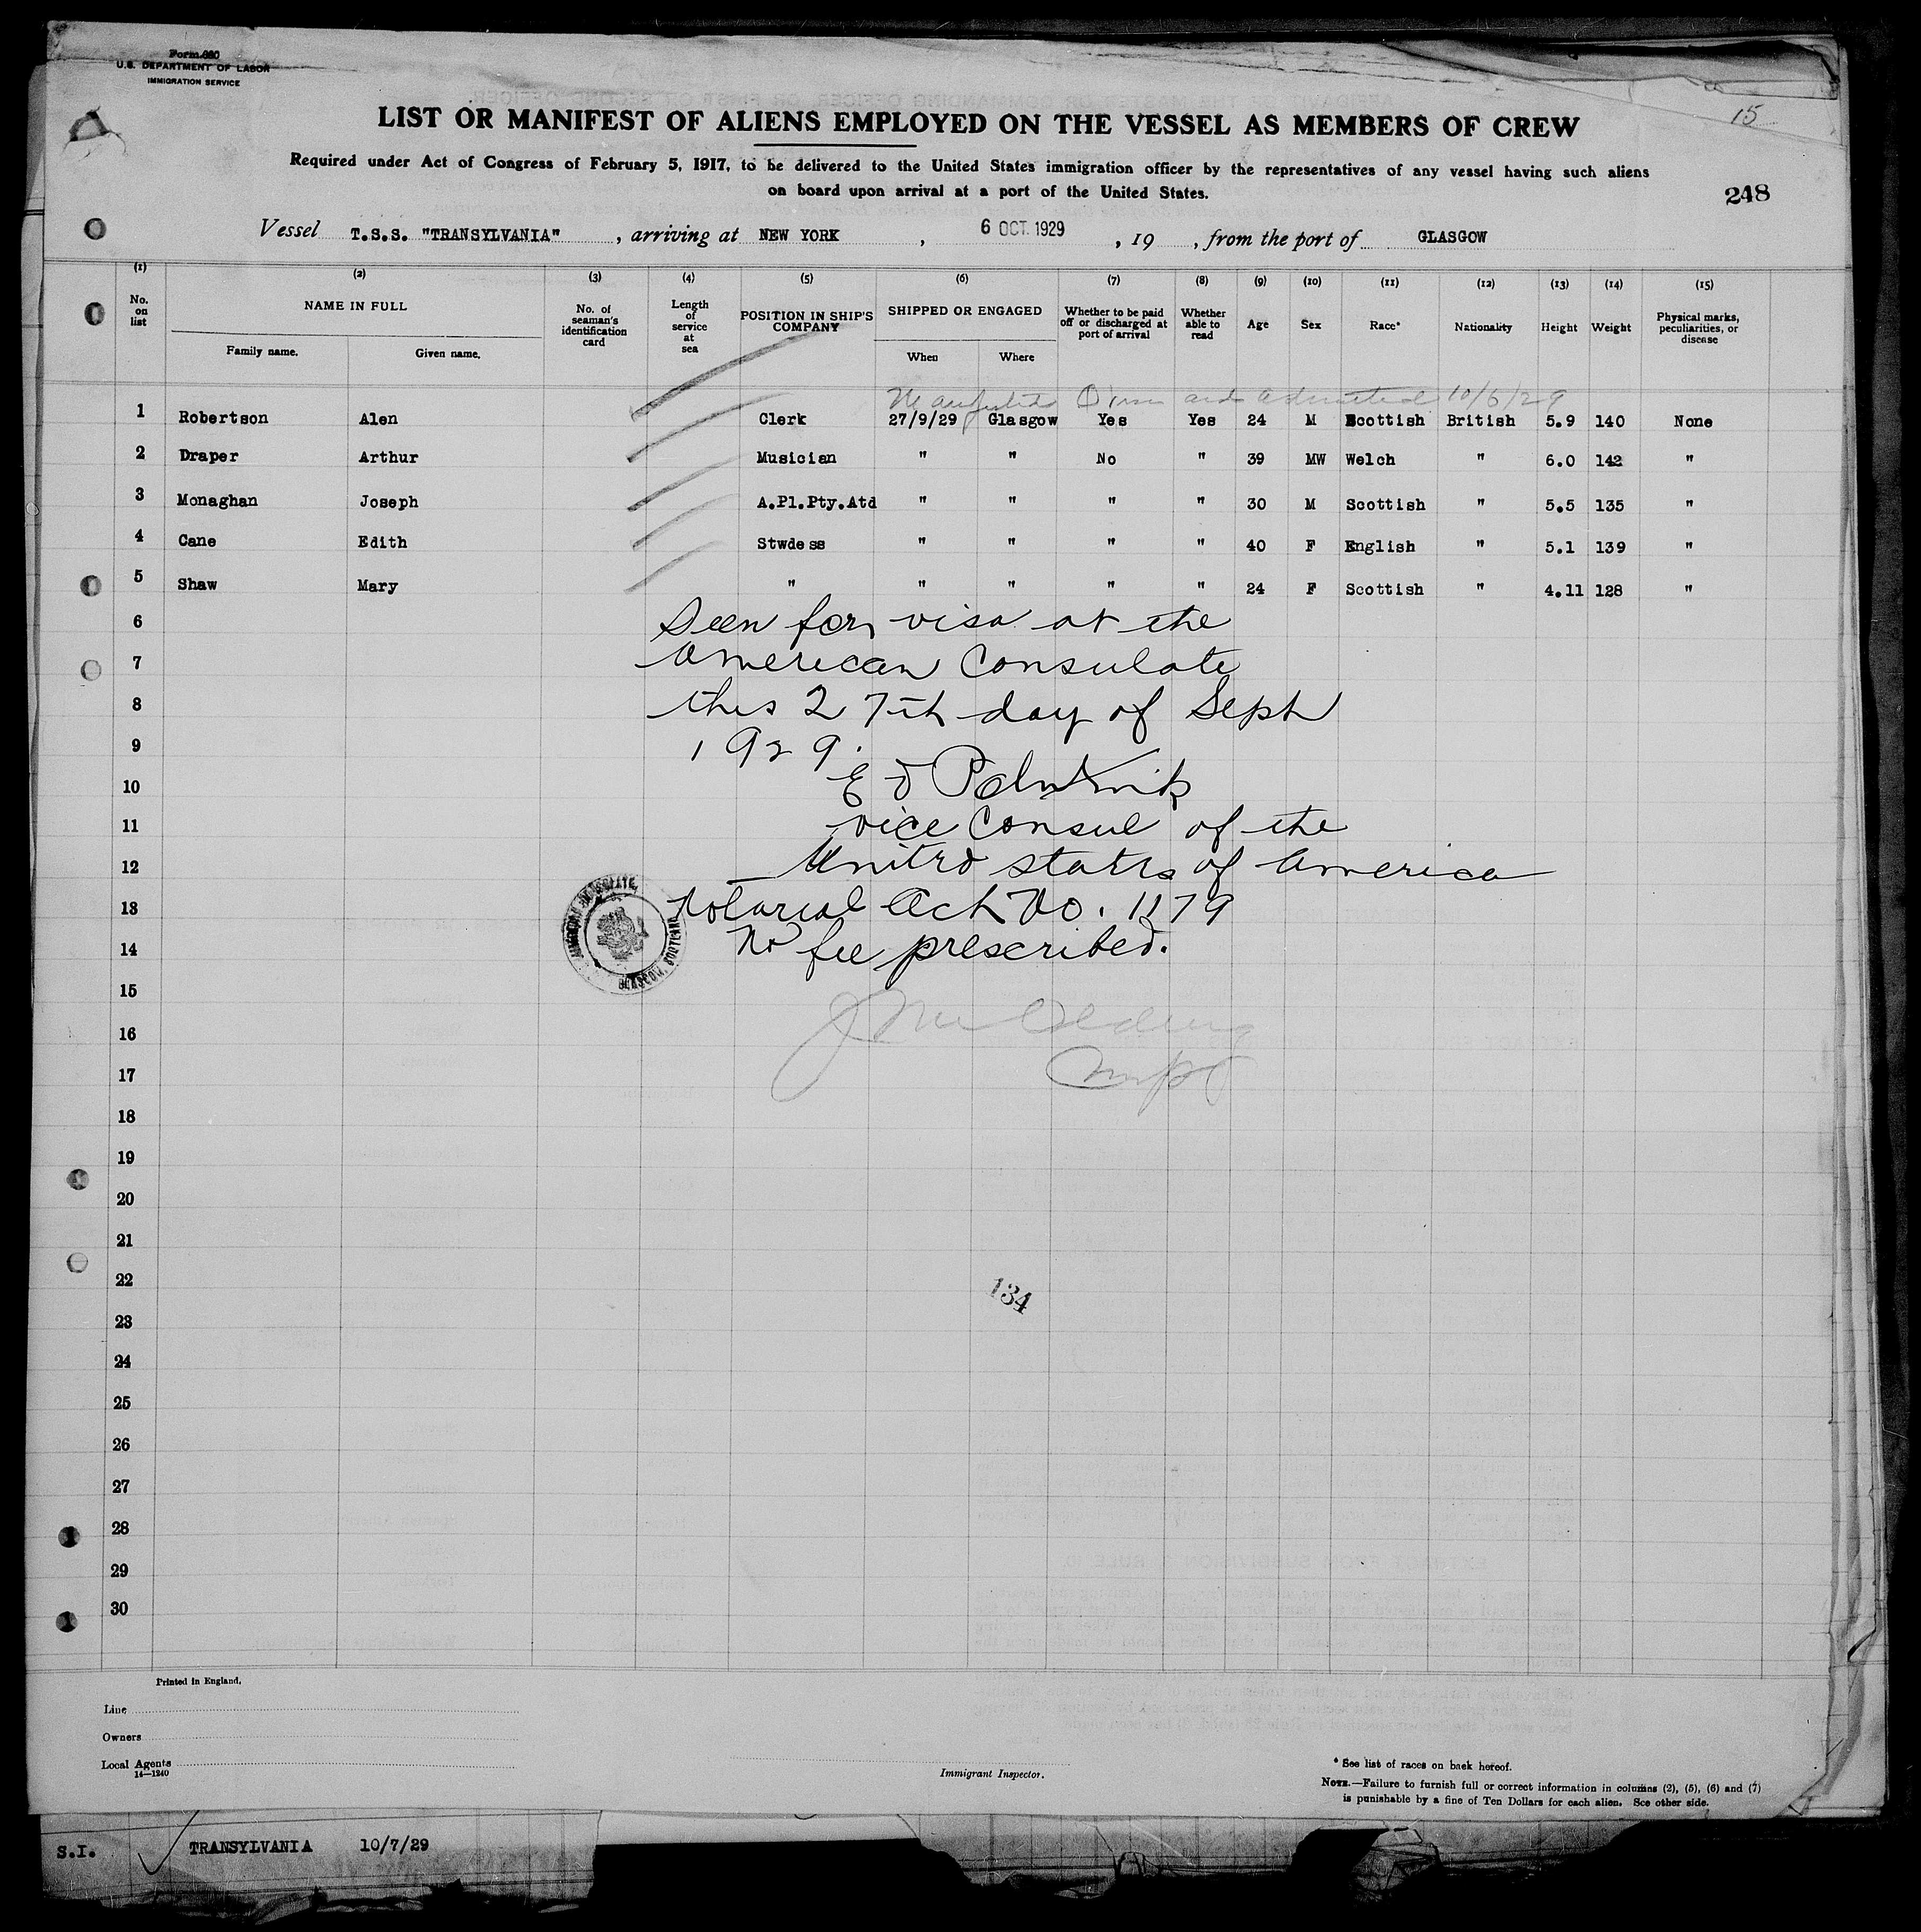 Form 680
U.S. DEPARTMENT OF LABOR
IMMIGRATION SERVICE
15
LIST OR MANIFEST OF ALIENS EMPLOYED ON THE VESSEL AS MEMBERS OF CREW
Required under Act of Congress of February 5, 1917, to be delivered to the United States immigration officer by the representatives of any vessel having such aliens
on board upon arrival at a port of the United States.
248
Vessel T.S.S. "TRANSYLVANIA" , arriving at NEW YORK , 6 OCT. 1929 , 19 , from the port of GLASGOW
(1) (2) (3) (4) (5) (6) (7) (8) (9) (10) (11) (12) (13) (14) (15)
No. on list NAME IN FULL Family name. Given name. No. of seaman's identification card Length of service at sea POSITION IN SHIP'S COMPANY SHIPPED OR ENGAGED When Where Whether to be paid off or discharged at port of arrival Whether able to read Age Sex Race* Nationality Height Weight Physical marks, peculiarities, or disease
and admitted 10/6/29
1 Robertson Alen Clerk 27/9/29 Glasgow Yes Yes 24 M Scottish British 5.9 140 None
2 Draper Arthur Musician " " No " 39 MW Welch " 6.0 142 "
3 Monaghan Joseph A.Pl.Pty.Atd " " " " 30 M Scottish " 5.5 135 "
4 Cane Edith Stwdess " " " " 40 F English " 5.1 139 "
5 Shaw Mary " " " " " 24 F Scottish " 4.11 128 "
6 Seen for visa at the
7 American Consulate
8 this 27th day of Sept
9 1929.
10
11 vice Consul of the
12 United States of America
13 Notarial Act No. 1179
14 No fee prescribed.
AMERICAN CONSULATE, GLASGOW, SCOTLAND
15
16
17
18
19
20
21
22
134
23
24
25
26
27
28
29
30
Printed in England.
Line
Owners
Local Agents
14—1240
Immigrant Inspector.
* See list of races on back hereof.
NOTE.—Failure to furnish full or correct information in columns (2), (5), (6) and (7)
is punishable by a fine of Ten Dollars for each alien. See other side.
S.I. TRANSYLVANIA 10/7/29